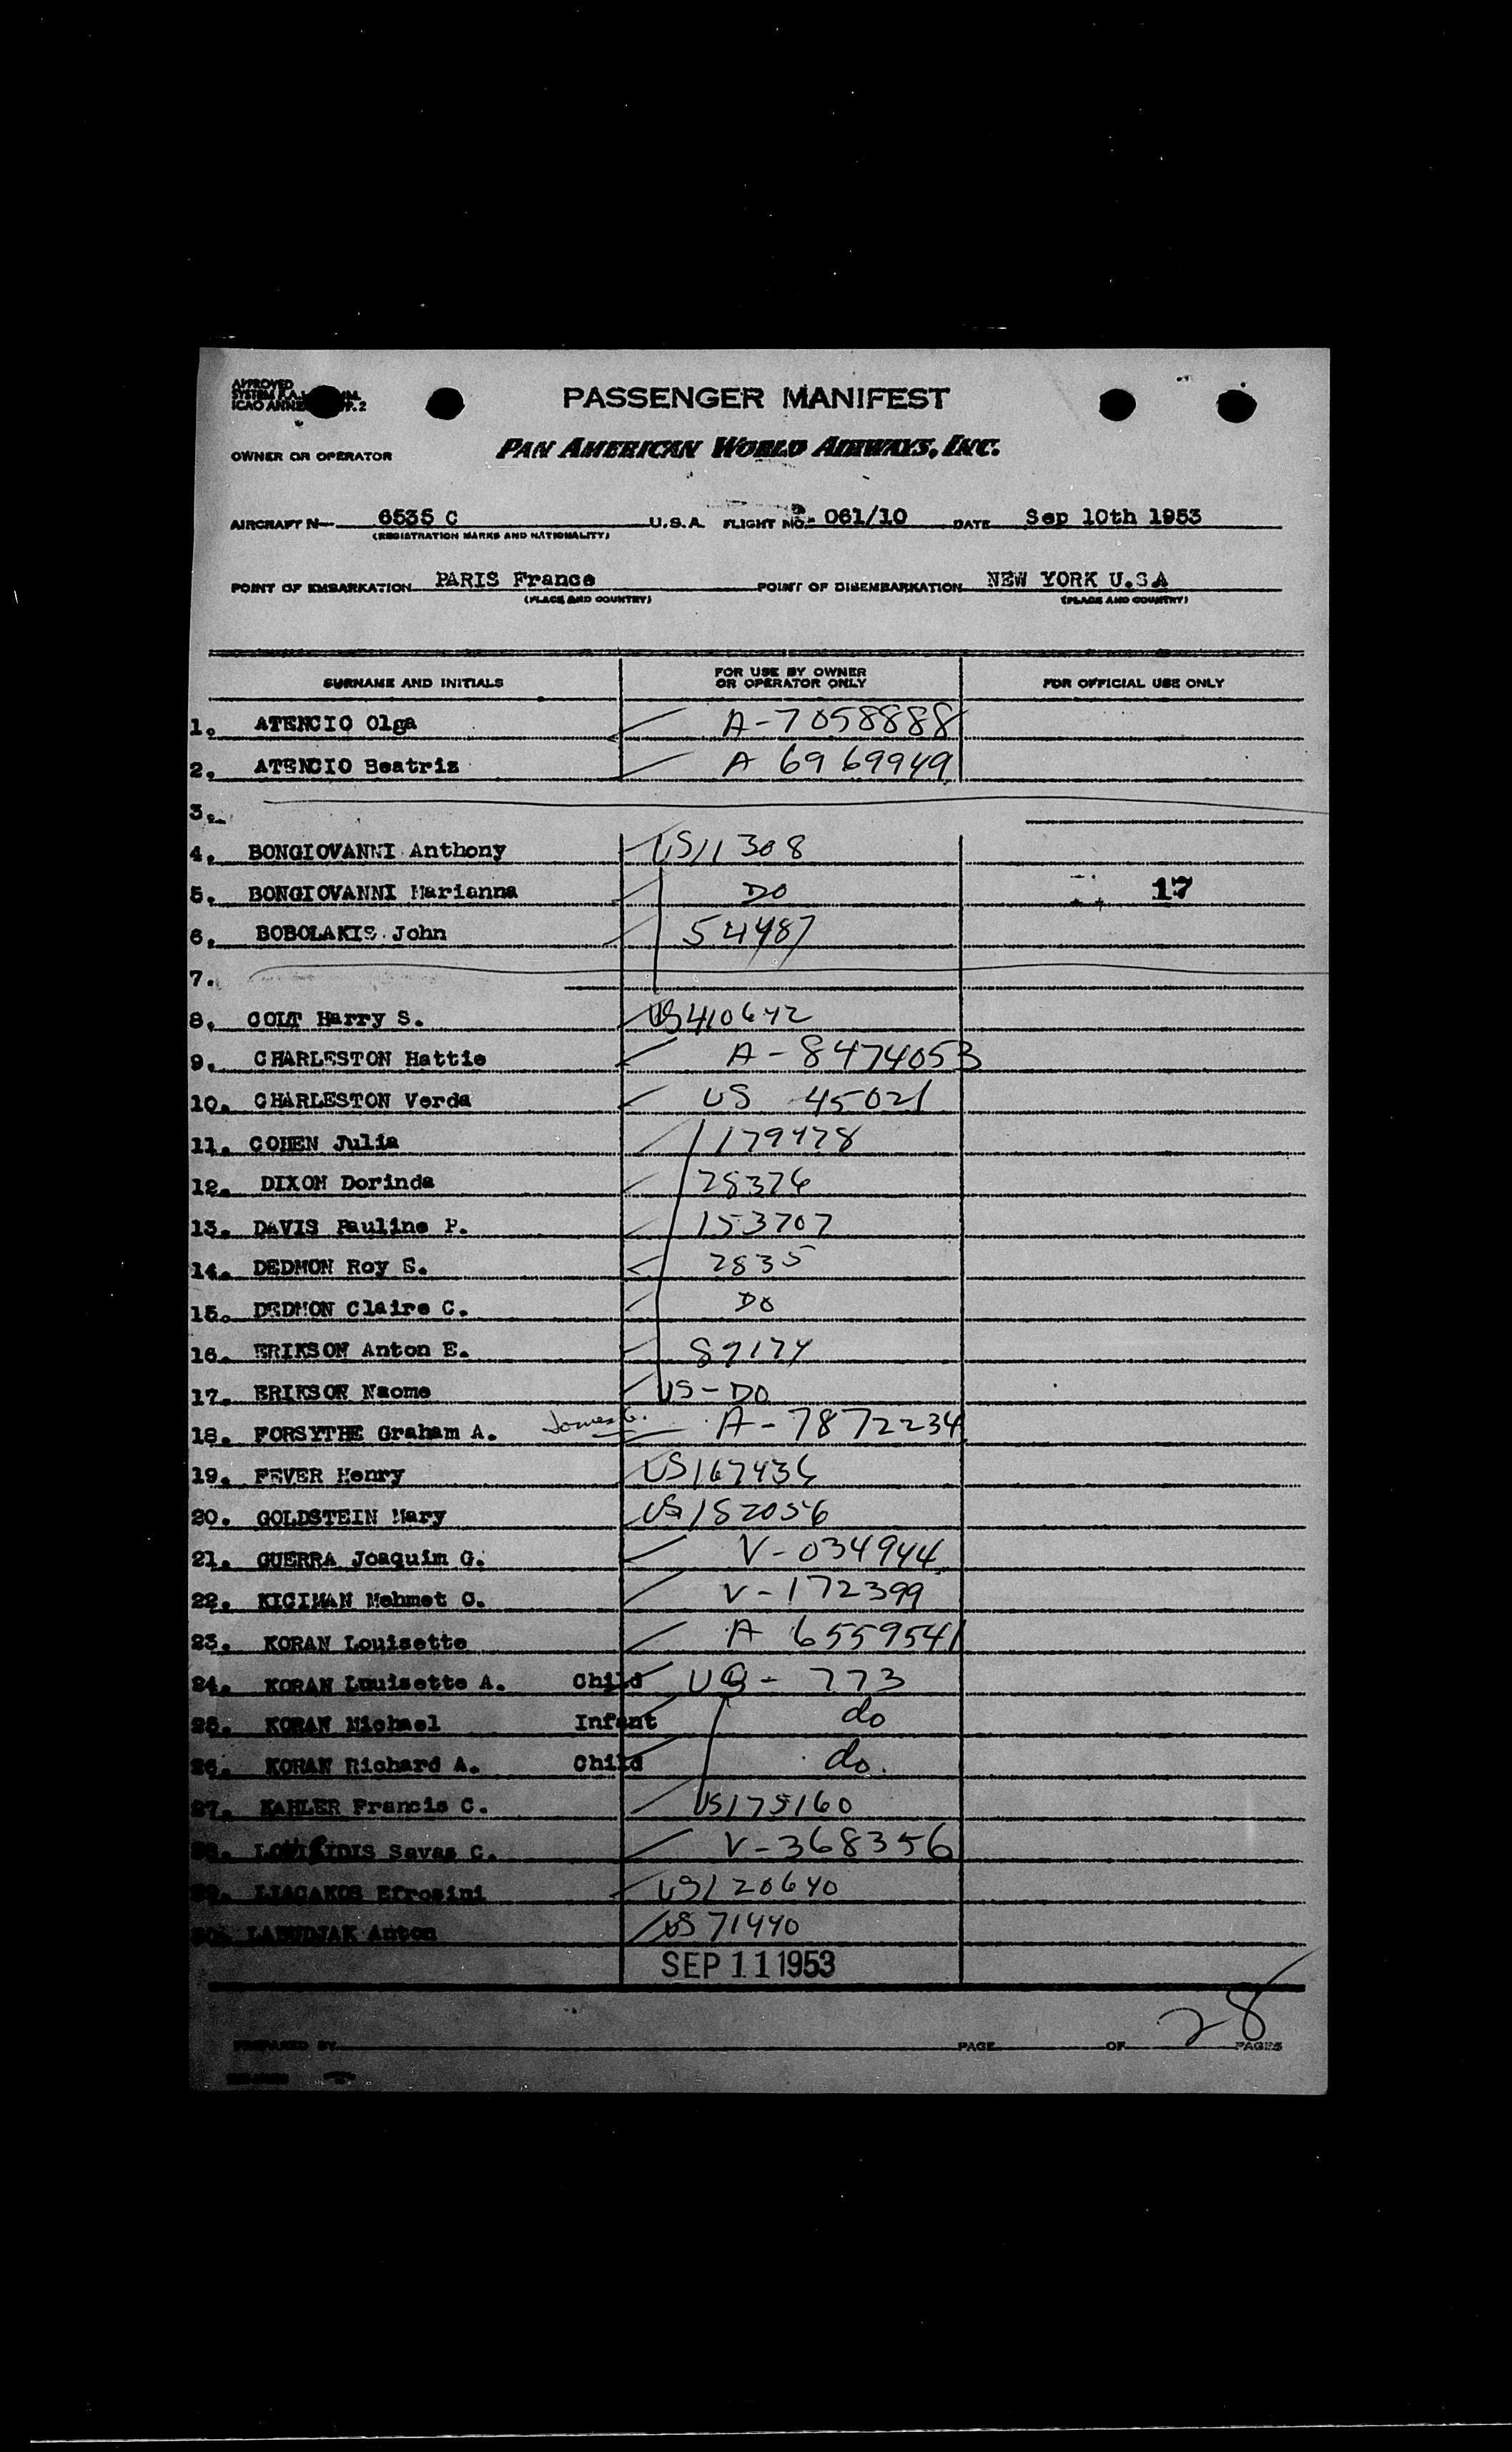 APPROVED
OWNER OR OPERATOR
PASSENGER MANIFEST
PAN AMERICAN WORLD AIRWAYS, INC.
AIRCRAFT N 6535 C U.S.A. FLIGHT NO. 061/10 DATE Sep 10th 1953
(REGISTRATION MARKS AND NATIONALITY)
POINT OF EMBARKATION PARIS France POINT OF DISEMBARKATION NEW YORK U.S.A
(PLACE AND COUNTRY) (PLACE AND COUNTRY)
SURNAME AND INITIALS FOR USE BY OWNER OR OPERATOR ONLY FOR OFFICIAL USE ONLY
1. ATENCIO Olga A-7058888
2. ATENCIO Beatriz A 6969949
3.
4. BONGIOVANNI Anthony US11308
5. BONGIOVANNI Marianna DO 17
6. BOBOLAKIS John 54487
7.
8. COLT Harry S. US410642
9. CHARLESTON Hattie A-8474053
10. CHARLESTON Verda US 45021
11. COHEN Julia 179478
12. DIXON Dorinda 28376
13. DAVIS Pauline P. 153707
14. DEDMON Roy S. 2835
15. DEDMON Claire C. DO
16. ERIKSON Anton E. 87174
17. ERIKSON Naome US-DO
18. FORSYTHE Graham A. James G. A-7872234
19. FEVER Henry US167436
20. GOLDSTEIN Mary US152056
21. GUERRA Joaquim G. V-034944
22. KICIMAN Mehmet C. V-172399
23. KORAN Louisette A 6559541
24. KORAN Louisette A. Child US-773
25. KORAN Michael Infant do
26. KORAN Richard A. Child do.
27. KAHLER Francis C. US175160
28. Savas C. V-368356
29. LIACAKOS Efrosini US120640
30. Anton US71440
SEP 11 1953
28
PREPARED BY PAGE OF PAGES